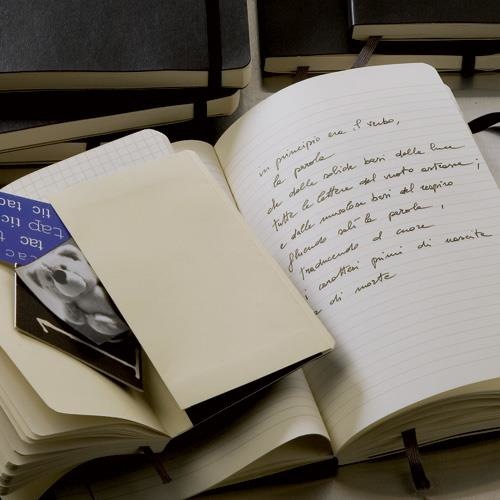 in principio era il verbo,
la parola
che dalle calide basi della luna
tutte le lettere del moto astrasse;
e dalle muscolose basi del respiro
la parola,
traducendo al cuore
i caratteri primi di nascita
e di morte
tic tac
tap tic
tac
tic tac
1